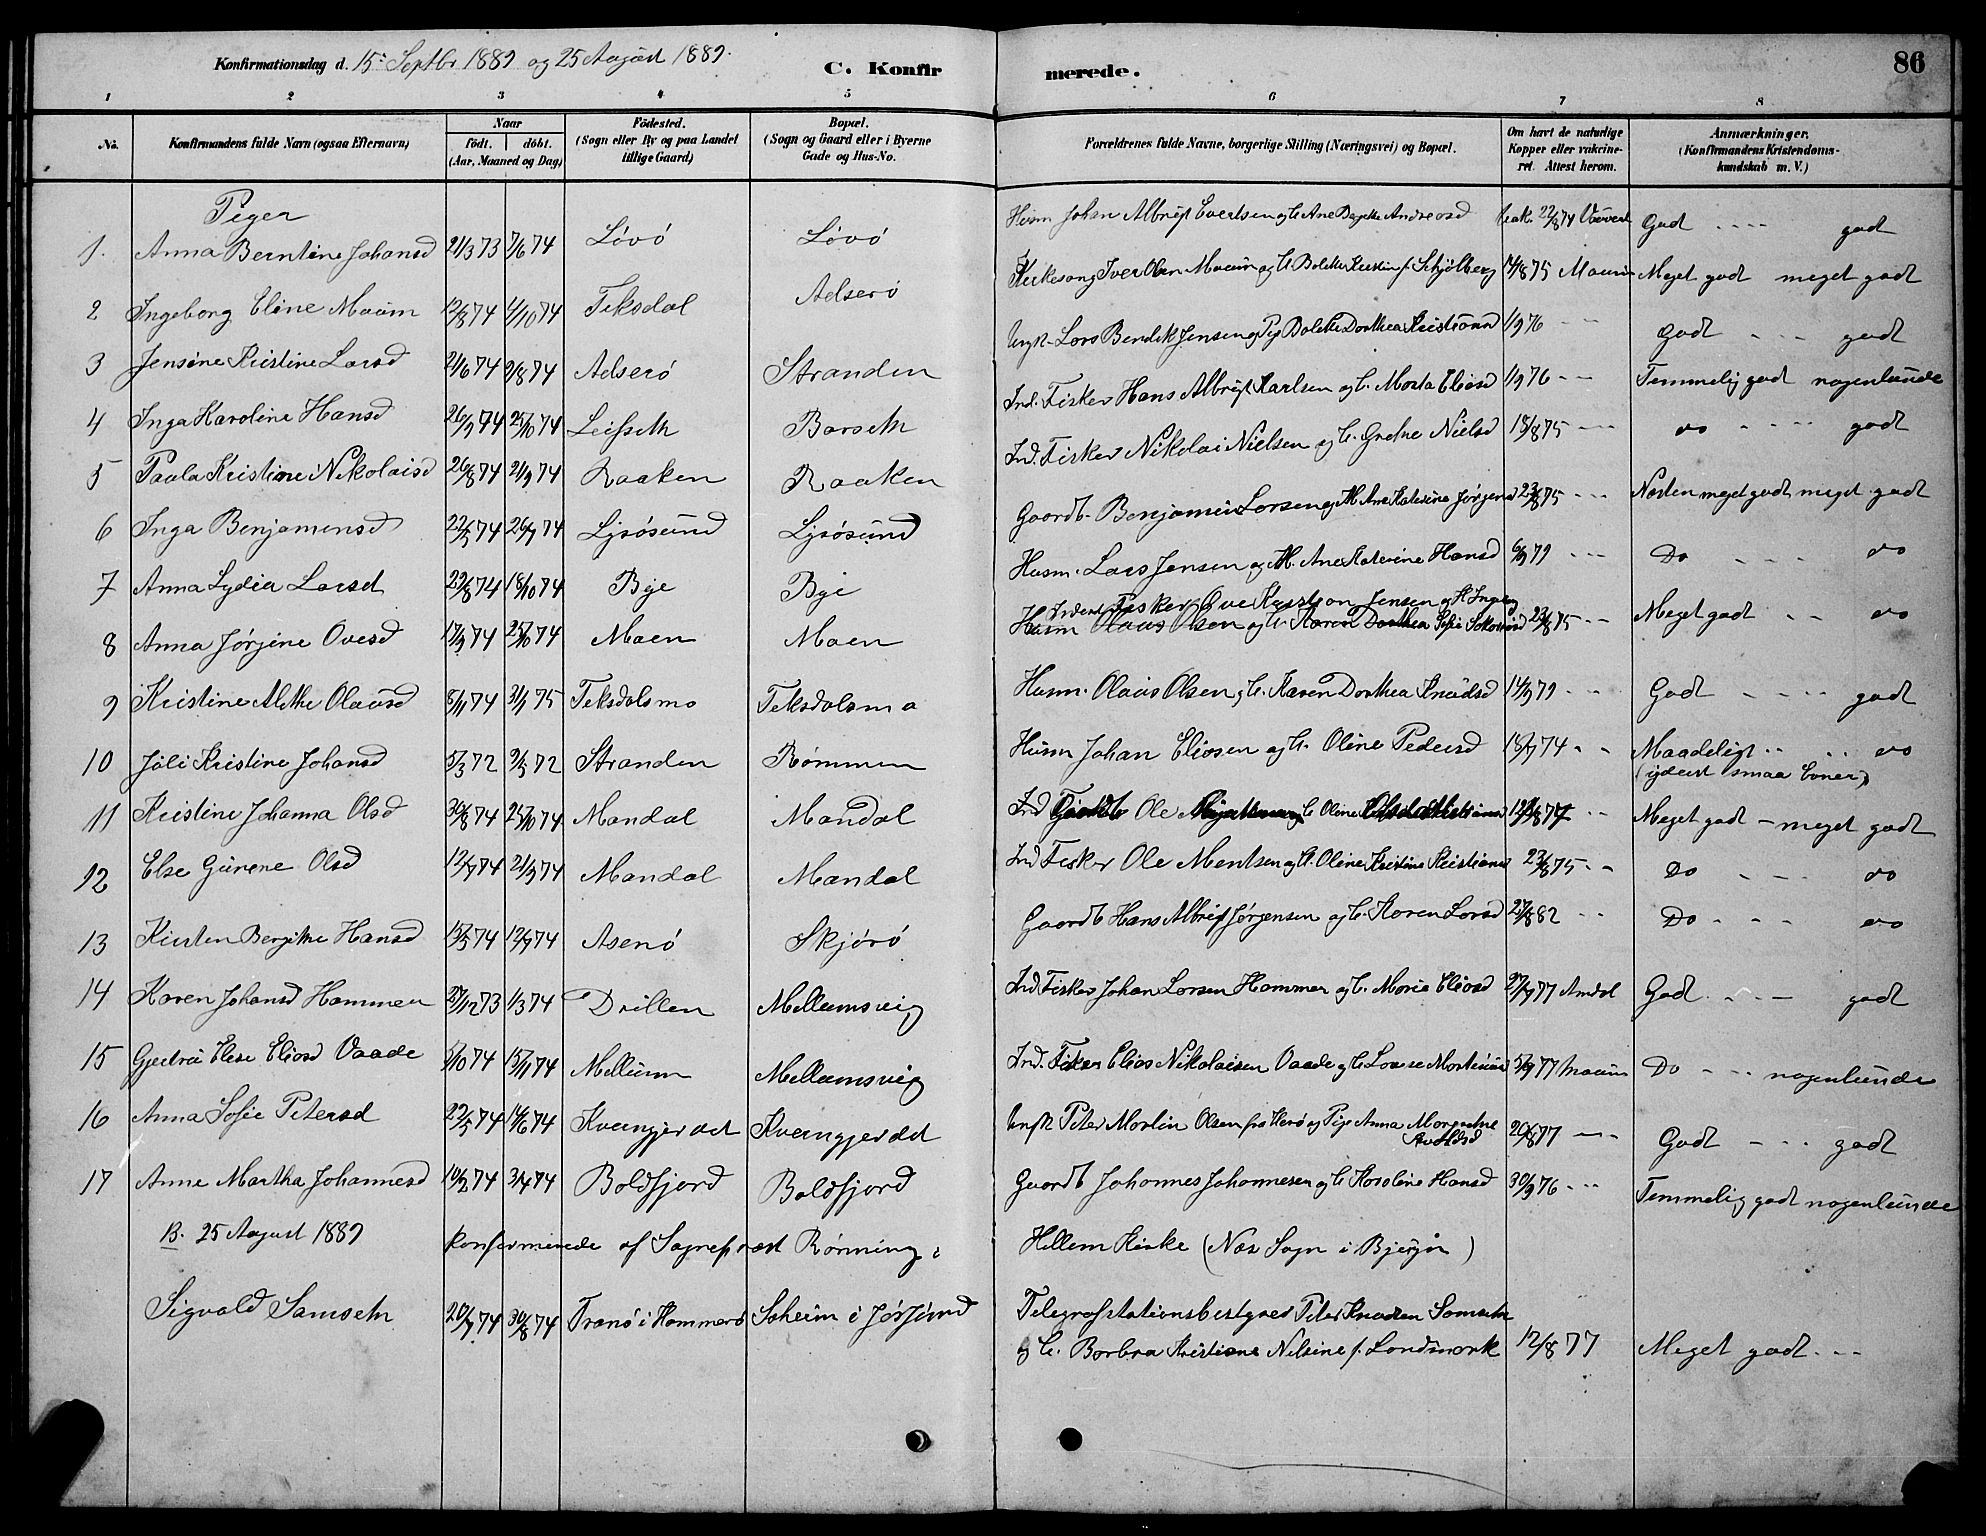 Konfirmationsdag d. 15. Septbr 1889 og 25 August 1889.
C. Konfirmerede.
86
1 2 3 4 5 6 7 8
No.
Konfirmandens fulde Navn (ogsaa Efternavn)
Naar
födt. döbt.
(Aar, Maaned og Dag)
Födested.
(Sogn eller By og paa Landet tillige Gaard)
Bopæl.
(Sogn og Gaard eller i Byerne Gade og Hus-No.
Forældrenes fulde Navne, borgerlige Stilling (Næringsvei) og Bopæl.
Om havt de naturlige Kopper eller vakcineret. Attest herom.
Anmærkninger.
(Konfirmandens Kristendomskundskab m. V.)
Piger
1. Anna Berntine Johansd 21/3 73 7/6 74 Lövö Lövö Husm Johan Albrigt Evertsen og H. Ane Andreasd vak. 22/8 74 Godt .... godt
2 Ingeborg Eline Maüm 12/8 74 4/10 74 Teksdal Adserö Kirkesang Iver Olsen Maüm og H. Kirstin f. Schjölberg 14/8 75 Maüm Meget godt meget godt
3 Jensine Kristine Larsd 21/6 74 9/8 74 Adserö Stranden Ungk. Lars Bendik Jensen og Pige Dorthea Kristiansd 1/9 76 -- Godt - - - godt
4 Inga Karoline Hansd 26/9 74 25/10 74 Leifseth Barseth Ind. Fisker Hans Albrigt Karlsen og H. Marta Eliasd 1/9 76 -- Temmelig godt nogenlunde
5 Paula Kristine Nikolaisd 26/8 74 21/9 74 Raaken Raaken Ind. Fisker Nikolai Nielsen og H. Grethe Nielsd 18/8 75 --- do - - - - godt
6 Inga Benjaminsd 22/5 74 26/7 74 Lysösund Lysösund Gaardb. Benjamin Larsen og H. Ane Katrina Jörgensd 23/8 75 --- Næsten meget godt meget godt
7 Anna Lydia Larsd 29/8 74 18/10 74 Bye Bye Husm. Lars Jensen og H. Ane Katerine Hansd 6/9 79 --- Do - - - do
8 Anna Jörgine Ovesd 17/9 74 25/10 74 Moen Moen Inderst Fisker Ove Jensen og H.
Husm Olaus Olsen og H. Karen Dorthea Sofie 23/8 75 -- Meget godt - - do
9 Kristine Alethe Olausd 8/11 74 31/1 75 Teksdalsmo Teksdalsmo Husm. Olaus Olsen og H. Karen Dorthea Knudsd 14/9 79 --- Godt - - - - godt
10 Juli Kristine Johansd 5/3 72 72 Stranden Rømmen Husm Johan Eliasen og H. Oline Pedersd 18/9 74 - - Maadeligt .. .. do
(yderst smaa Evner)
11 Kristine Johanna Olsd 30/8 74 25/10 74 Mandal Mandal Ind Ole og H. Oline Meget godt - meget godt
12 Else Gurene Olsd 12/7 74 21/9 74 Mandal Mandal Ind Fisker Ole Mentsen og H. Oline Kristine Kristiansd 23/8 75 -- Do - - - - do
13 Kirsten Bergithe Hansd 15/5 74 12/7 74 Asenö Skjörö Gaardb Hans Albrigt Jörgensen og H. Karen Larsd 27/8 82 -- Do - - - - do
14 Karen Johansd Hammer 27/12 73 1/3 74 Drillen Mellumsvig Ind Fisker Johan Larsen Hammer og H. Marie Eliasd 27/9 77 Godt - - - godt
15 Elise Eliasd Vaade 5/10 74 15/11 74 Mellum Mellumsvig Ind. Fisker Elias Nikolaisen Vaade og H. Lovise 5/9 77 Maüm Do - - - nogenlunde
16 Anna Sofie Petersd 22/5 74 14/6 74 Kverngjerdet Kverngjerdet Ungk Peter Martin Olsen fra og Pige Anna
20/8 77 --- Godt - - - godt
17 Anne Martha Johannesd 10/2 74 3/4 74 Boldfjord Boldfjord Gaardb Johannes Johannesen og H. Karoline Hansd 30/9 76 --- Temmelig godt nogenlunde
B. 25 August 1889 konfirmerede af Sogneprest Rönning i Hellem Kirke (Næs Sogn i Bjugn)
Sigvald Samseth 20/7 74 30/8 74 Tranö i Hammerö i Jössund Telegrafstationsbestyrer Peter Knudsen Samseth
og H. Barbra Kristiane Nilsine f. Landmark 12/8 77 Meget godt - - -